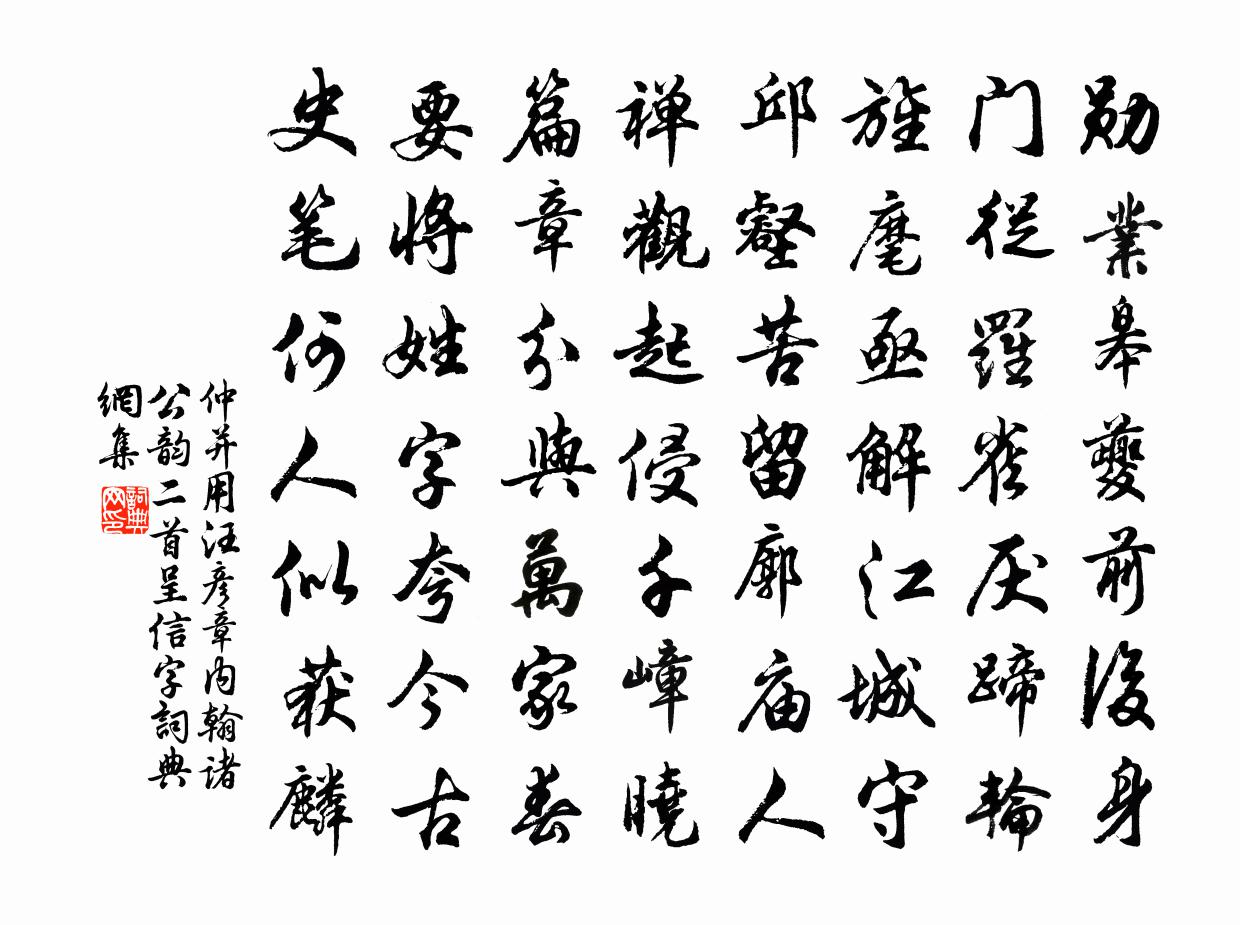 勛業皋夔前後身
門從羅雀厌蹄輪
旌麾亟解江城守
邱壑苦留廊庙人
禅觀起侵千嶂曉
篇章分與萬家春
要将姓字夸今古
史笔何人似获麟
仲并用汪彦章内翰诸
公韵二首呈信字詞典
網集
詞典
网印